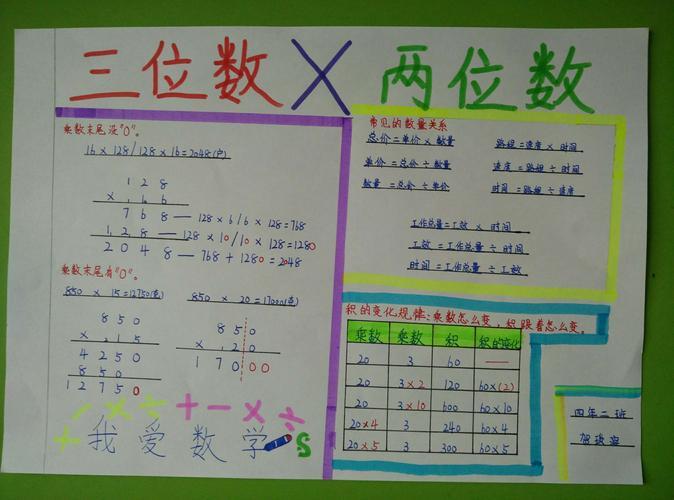 三位数 × 两位数
乘数末尾没"0"。
16 × 128/128 × 16=2048(户)
1 2 8
× 1 6
7 6 8 — 128 × 6/6 × 128=768
1 2 8 — 128 × 10/10 × 128=1280
2 0 4 8 — 768 + 1280=2048
乘数末尾有"0"。
850 × 15=12750(克)
8 5 0
× 1 5
4 2 5 0
8 5 0
1 2 7 5 0
850 × 20=17000(克)
8 5 0
× 2 0
1 7 0 0 0
+ - × ÷ + - × ÷
我爱数学
常见的数量关系
总价=单价×数量
单价=总价÷数量
数量=总价÷单价
路程=速度×时间
速度=路程÷时间
时间=路程÷速度
工作总量=工效×时间
工效=工作总量÷时间
时间=工作总量÷工效
积的变化规律:乘数怎么变,积跟着怎么变。
乘数 乘数 积 积的变化
20 3 60 —
20 3×2 120 60×(2)
20 3×10 600 60×10
20×4 3 240 60×4
20×5 3 300 60×5
四年二班